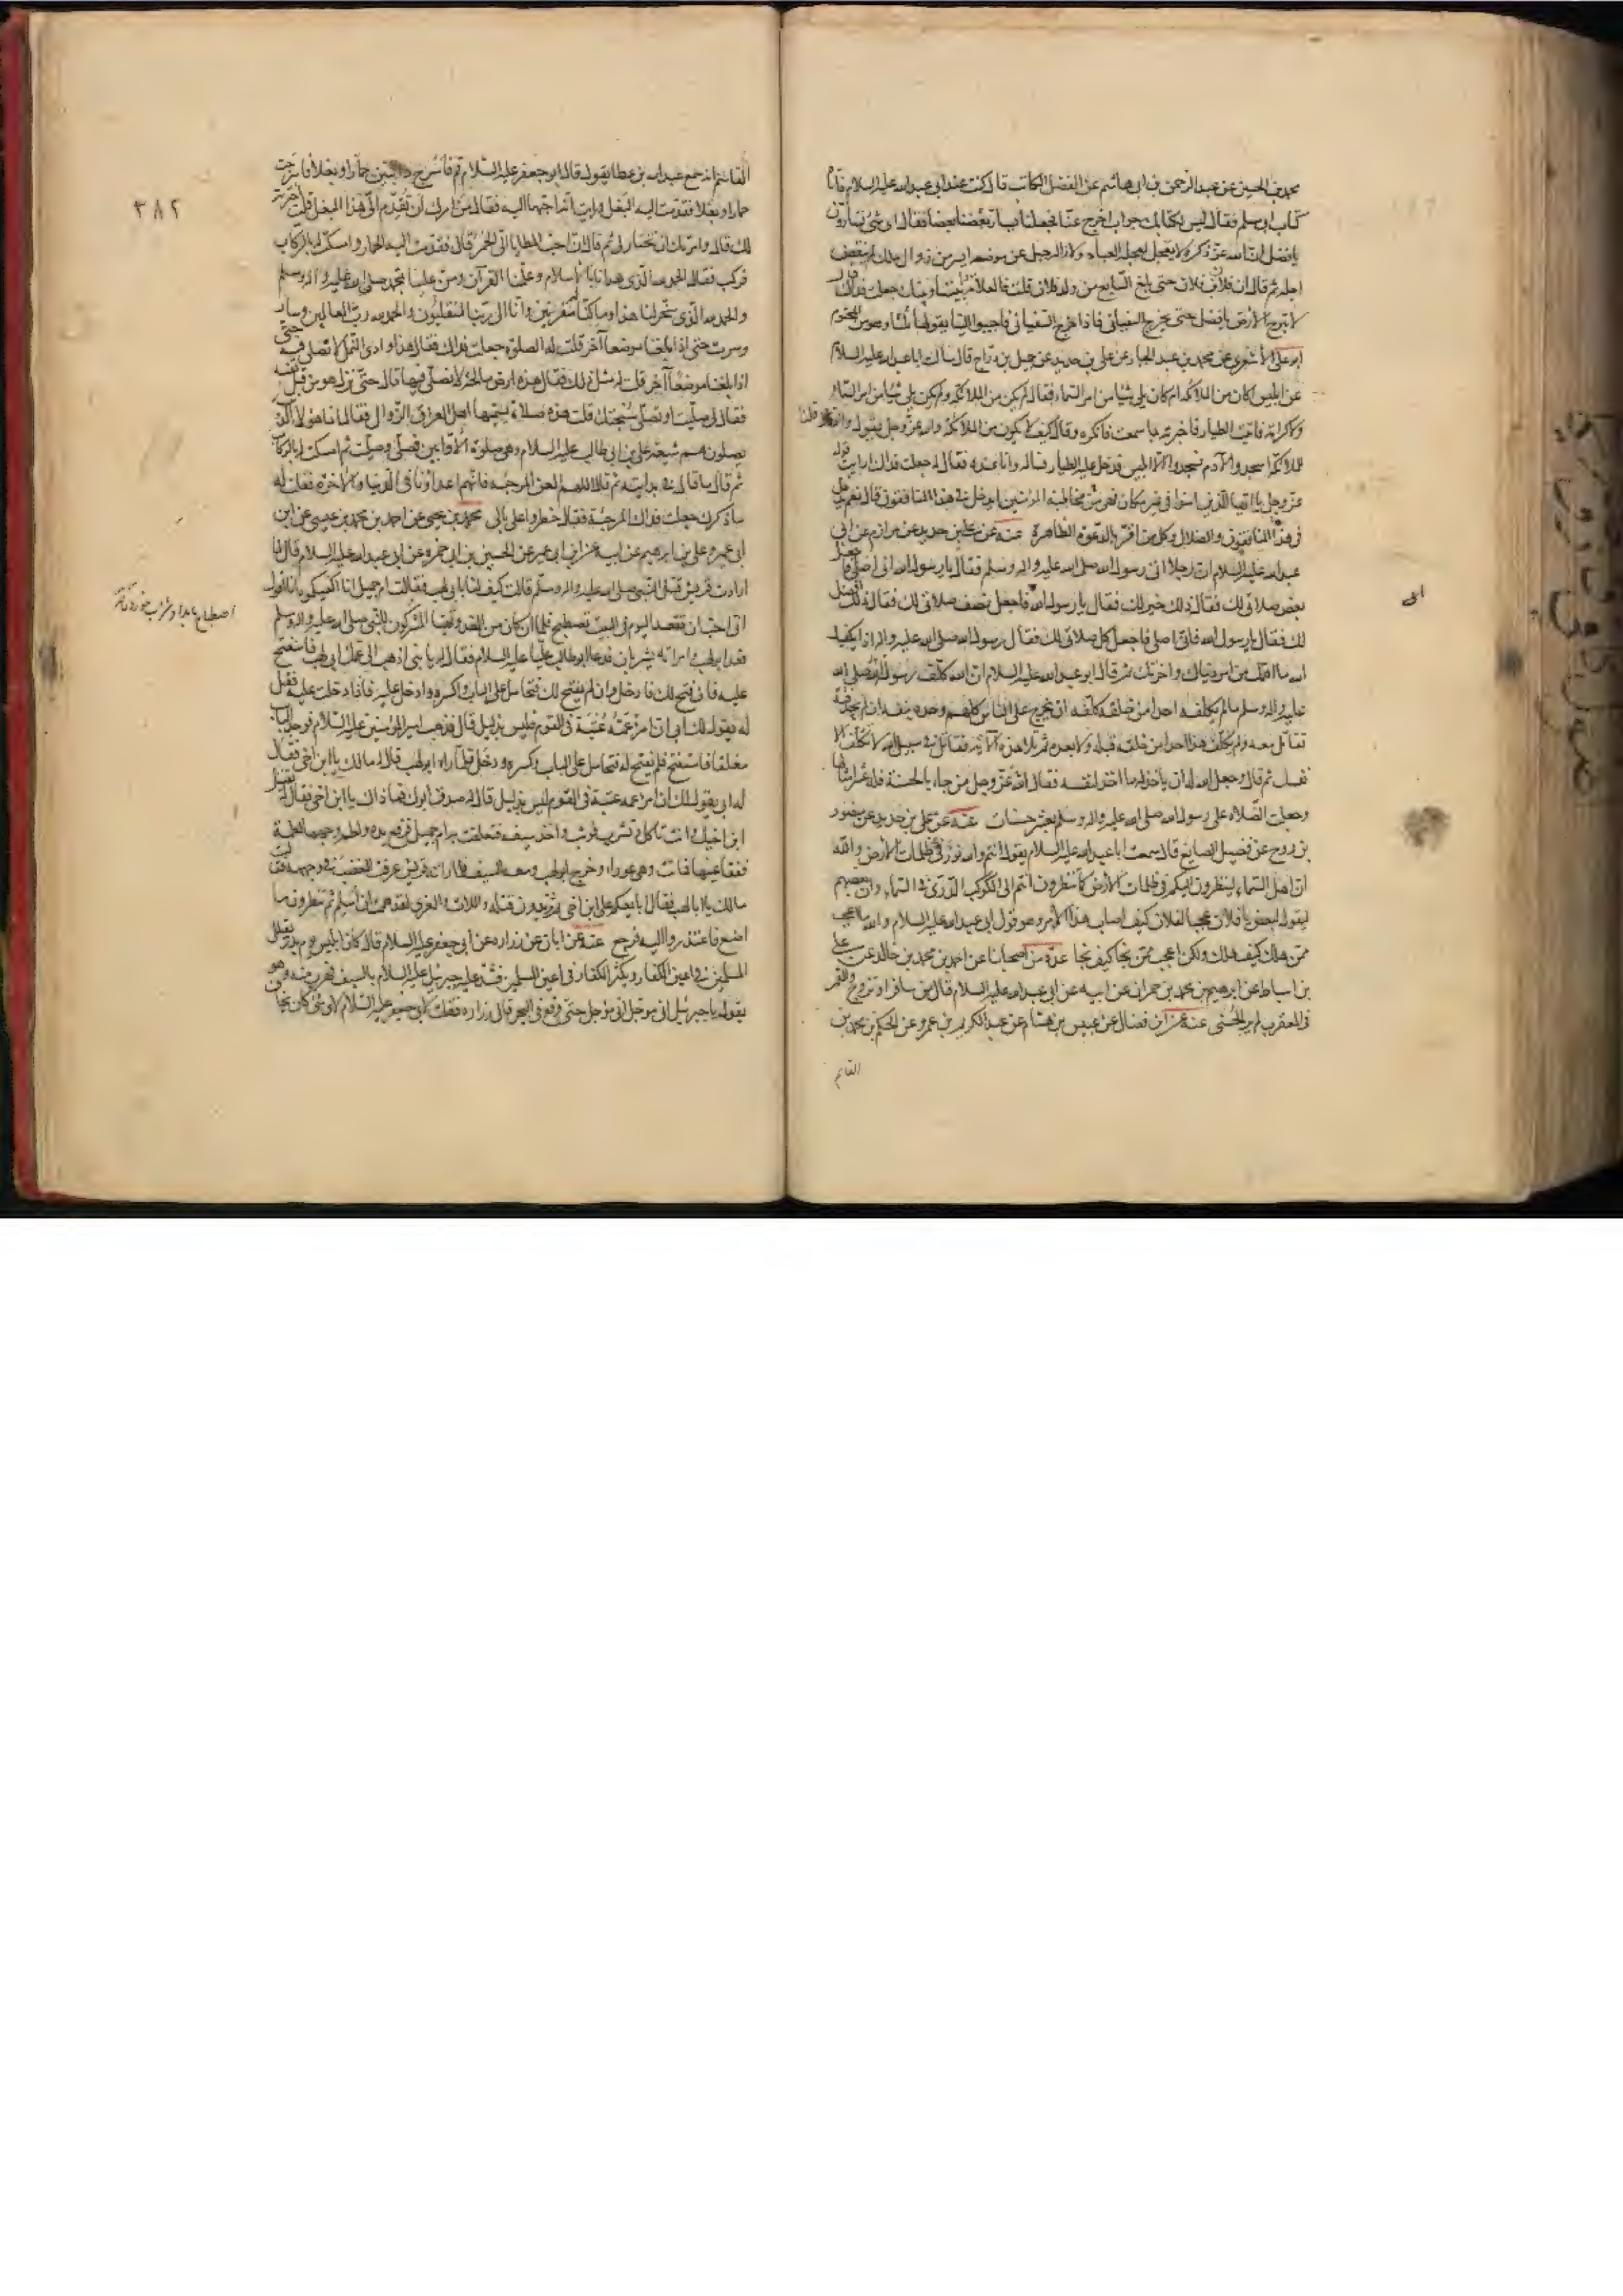 محمد بن الحسين عن عبد الرحمن بن ابى هاشم عن الفضل الكاتب قال كنت عند ابى عبد الله عليه السلام فاتاه
كتاب ابى مسلم فقال ليس لكتابك جواب اخرج عنا فجعلنا يسار بعضنا بعضا فقال اى شئ تسارون
يا فضل ان الله عز ذكره لا يعجل لعجلة العباد ولازالة جبل عن موضعه ايسر من زوال ملك لم ينقض
اجله ثم قال ان فلان بن فلان حتى بلغ السابع من ولد فلان قلت فما العلامة فيما بيننا وبينك جعلت فداك قال
لا تبرح الارض يا فضل حتى يخرج السفيانى فاذا خرج السفيانى فاجيبوا الينا يقولها ثلثا وهو من المحتوم
ابو على الاشعرى عن محمد بن عبد الجبار عن على بن حديد عن جميل بن دراج قال سألت ابا عبد الله عليه السلام
عن ابليس اكان من الملائكة ام كان يلى شيئا من امر السماء فقال لم يكن من الملائكة ولم يكن يلى شيئا من امر السماء
ولا كرامة فاتيت الطيار فاخبرته بما سمعت فانكره وقال كيف لا يكون من الملائكة والله عز وجل يقول واذ قلنا
للملائكة اسجدوا لآدم فسجدوا الا ابليس فدخل عليه الطيار فسأله وانا عنده فقال له جعلت فداك ارايت قوله
عز وجل يا ايها الذين امنوا فى غير مكان فى مخاطبة المؤمنين ايدخل فى هذا المنافقون قال نعم يدخل
فى هذا المنافقون والضلال وكل من اقر بالدعوة الظاهرة عنه عن على بن حديد عن مرازم عن ابى
عبد الله عليه السلام ان رجلا اتى رسول الله صلى الله عليه واله وسلم فقال يا رسول الله انى اصلى فاجعل
بعض صلاتى لك فقال ذلك خير لك فقال يا رسول الله فاجعل نصف صلاتى لك فقال ذلك افضل
لك فقال يا رسول الله فانى اصلى فاجعل كل صلاتى لك فقال رسول الله صلى الله عليه واله اذا يكفيك
الله ما اهمك من امر دنياك واخرتك ثم قال ابو عبد الله عليه السلام ان الله كلف رسول الله صلى الله
عليه واله وسلم مالم يكلفه احدا من خلقه كلفه ان يخرج على الناس كلهم وحده بنفسه ان لم يجد فئة
تقاتل معه ولم يكلف هذا احدا من خلقه قبله ولا بعده ثم تلا هذه الآية فقاتل فى سبيل الله لا تكلف الا
نفسك ثم قال وجعل الله له ان يأخذ له ما اخذ لنفسه فقال الله عز وجل من جاء بالحسنة فله عشر امثالها
وجعلت الصلاة على رسول الله صلى الله عليه واله وسلم بعشر حسنات عنه عن على بن حديد عن منصور
بن روح عن فضيل الصايغ قال سمعت ابا عبد الله عليه السلام يقول انتم والله نور فى ظلمات الارض والله
ان اهل السماء لينظرون اليكم فى ظلمات الارض كما تنظرون انتم الى الكوكب الدرى فى السماء وان بعضهم
ليقول لبعض يا فلان عجبا لفلان كيف اصاب هذا الامر وهو قول ابى عبد الله عليه السلام والله ما اعجب
ممن هلك كيف هلك ولكن اعجب ممن نجا كيف نجا عدة من اصحابنا عن احمد بن محمد بن خالد عن على
بن اسباط عن ابرهيم بن محمد بن حمران عن ابيه عن ابى عبد الله عليه السلام قال من سافر او تزوج والقمر
فى العقرب لم ير الحسنى عنه عن ابن فضال عن عبيس بن هشام عن عبد الكريم بن عمرو عن الحكم بن محمد بن
القاسم
الى
٣٨٢
القاسم انه سمع عبد الله بن عطا يقول قال ابو جعفر عليه السلام قم فاسرج دابتين حمارا وبغلا فاسرجت
حمارا وبغلا فقدمت اليه البغل ورايت انه احبهما اليه فقال من امرك ان تقدم الى هذا البغل قلت اخترته
لك قال وامرتك ان تختار لى ثم قال ان احب المطايا الى الحمر قال فقدمت اليه الحمار وامسكت له بالركاب
فركب فقال الحمد لله الذى هدانا بالاسلام وعلمنا القرآن ومن علينا بمحمد صلى الله عليه واله وسلم
والحمد لله الذى سخر لنا هذا وما كنا له مقرنين وانا الى ربنا لمنقلبون والحمد لله رب العالمين وسار
وسرت حتى اذا بلغنا موضعا آخر قلت له الصلوة جعلت فداك فقال هذا وادى النمل لا تصلى فيه حتى
اذا بلغنا موضعا آخر قلت له مثل ذلك فقال هذه ارض مالحة لا نصلى فيها قال حتى نزل هو من قبل نفسه
فقال لى صليت او تصلى سبحتك قلت هذه صلاة يسميها اهل العراق الزوال فقال اما هؤلاء الذين
يصلون هم شيعة على بن ابى طالب عليه السلام وهى صلوة الاوابين فصلى وصليت ثم امسكت له بالركاب
ثم قال ما قال فى بدايته ثم قال اللهم العن المرجئة فانهم اعداؤنا فى الدنيا والآخرة فقلت له
ما ذكرك جعلت فداك المرجئة فقال خطروا على بالى محمد بن يحيى عن احمد بن محمد بن عيسى عن ابن
ابى عمير وعلى بن ابرهيم عن ابيه عن ابن ابى عمير عن الحسين بن ابى حمزة عن ابى عبد الله عليه السلام قال لما
ارادت قريش قتل النبى صلى الله عليه واله وسلم قالت كيف لنا بابى لهب فقالت ام جميل انا اكفيكموه انا اقول له
انى احب ان تقعد اليوم فى البيت نصطبح فلما ان كان من الغد وتهيا المشركون للنبى صلى الله عليه واله وسلم
قعد ابو لهب وامراته يشربان فدعا ابو طالب عليا عليه السلام فقال له يا بنى اذهب الى عمك ابى لهب فاستفتح
عليه فان فتح لك فادخل وان لم يفتح لك فتحامل على الباب واكسره وادخل عليه فاذا دخلت عليه فقل
له يقول لك ابى ان امرءا عمه عينه فى القوم فليس بذليل قال فذهب امير المؤمنين عليه السلام فوجد الباب
مغلقا فاستفتح فلم يفتح له فتحامل على الباب وكسره ودخل فلما راه ابو لهب قال له مالك يا ابن اخى فقال
له ابى يقول لك ان امرءا عمه عينه فى القوم ليس بذليل قال له صدق ابوك فما ذاك يا ابن اخى فقال له يقتل
ابن اخيك وانت تأكل وتشرب فوثب واخذ سيفه فتعلقت به ام جميل فرفع يده ولطم وجهها لطمة
ففقأ عينها فماتت وهى عوراء وخرج ابو لهب ومعه السيف فلما راته قريش عرفت الغضب فى وجهه فقالت
مالك يا ابا لهب فقال ابايعكم على ابن اخى ثم تريدون قتله واللات والعزى لقد هممت ان اسلم ثم تنظرون ما
اصنع فاعتذروا اليه فرجع عنه عن ابان عن زرارة عن ابى جعفر عليه السلام قال كان ابليس يوم بدر يقلل
المسلمين فى اعين الكفار ويكثر الكفار فى اعين المسلمين فشد عليه جبرئيل عليه السلام بالسيف فهرب منه وهو
يقول يا جبرئيل انى مؤجل انى مؤجل حتى وقع فى البحر قال زرارة فقلت لابى جعفر عليه السلام لاى شئ كان يخاف
اصطباح بامداد شراب خوردن